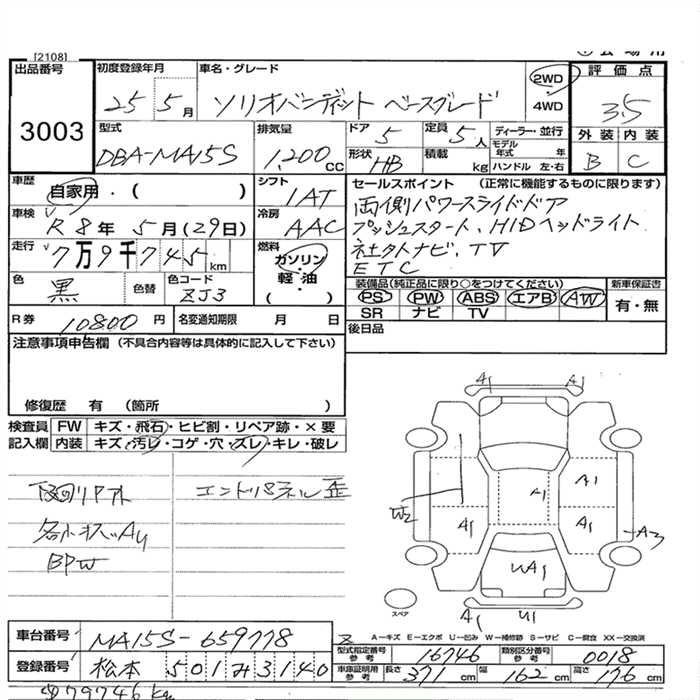 [2108]
出品番号
3003
初度登録年月
25 5月
車名・グレード
ソリオバンディット ベースグレード
2WD
・
4WD
評価点
3.5
外装 内装
B C
型式
DBA-MA15S
排気量
1,200 CC
ドア 5
形状 HB
定員 5人
積載 kg
ディーラー・並行
モデル年式 年
ハンドル 左・右
車歴
自家用・( )
シフト
1AT
車検
R8年 5月(29日)
冷房
AAC
走行
7万9千745km
燃料
ガソリン・軽・油
( )
色
黒
色替
色コード
ZJ3
R券 10800円
名変通知期限 月 日
セールスポイント (正常に機能するものに限ります)
両側パワースライドドア
プッシュスタート、HIDヘッドライト
社外ナビ、TV
ETC
装備品(純正品に限り○をつけてください)
PS PW ABS エアB AW
SR ナビ TV
新車保証書
有・無
後日品
注意事項申告欄 (不具合内容等は具体的に記入して下さい)
修復歴 有 (箇所 )
検査員記入欄
FW キズ・飛石・ヒビ割・リペア跡・×要
内装 キズ・汚レ・コゲ・穴・ズレ・キレ・破レ
エンドパネル歪
BPW
A1 A1
W2
A1
A1
A1
A1
A3
UA1
A1 U1
スペア
A－キズ E－エクボ U－凹み W－補修跡 S－サビ C－腐食 XX－交換済
車台番号 MA15S-659778
登録番号 松本 501み3140
型式指定番号 参考 16746
類別区分番号 参考 0018
車庫証明用 参考 長さ 371cm 幅 162cm 高さ 176cm
79746km